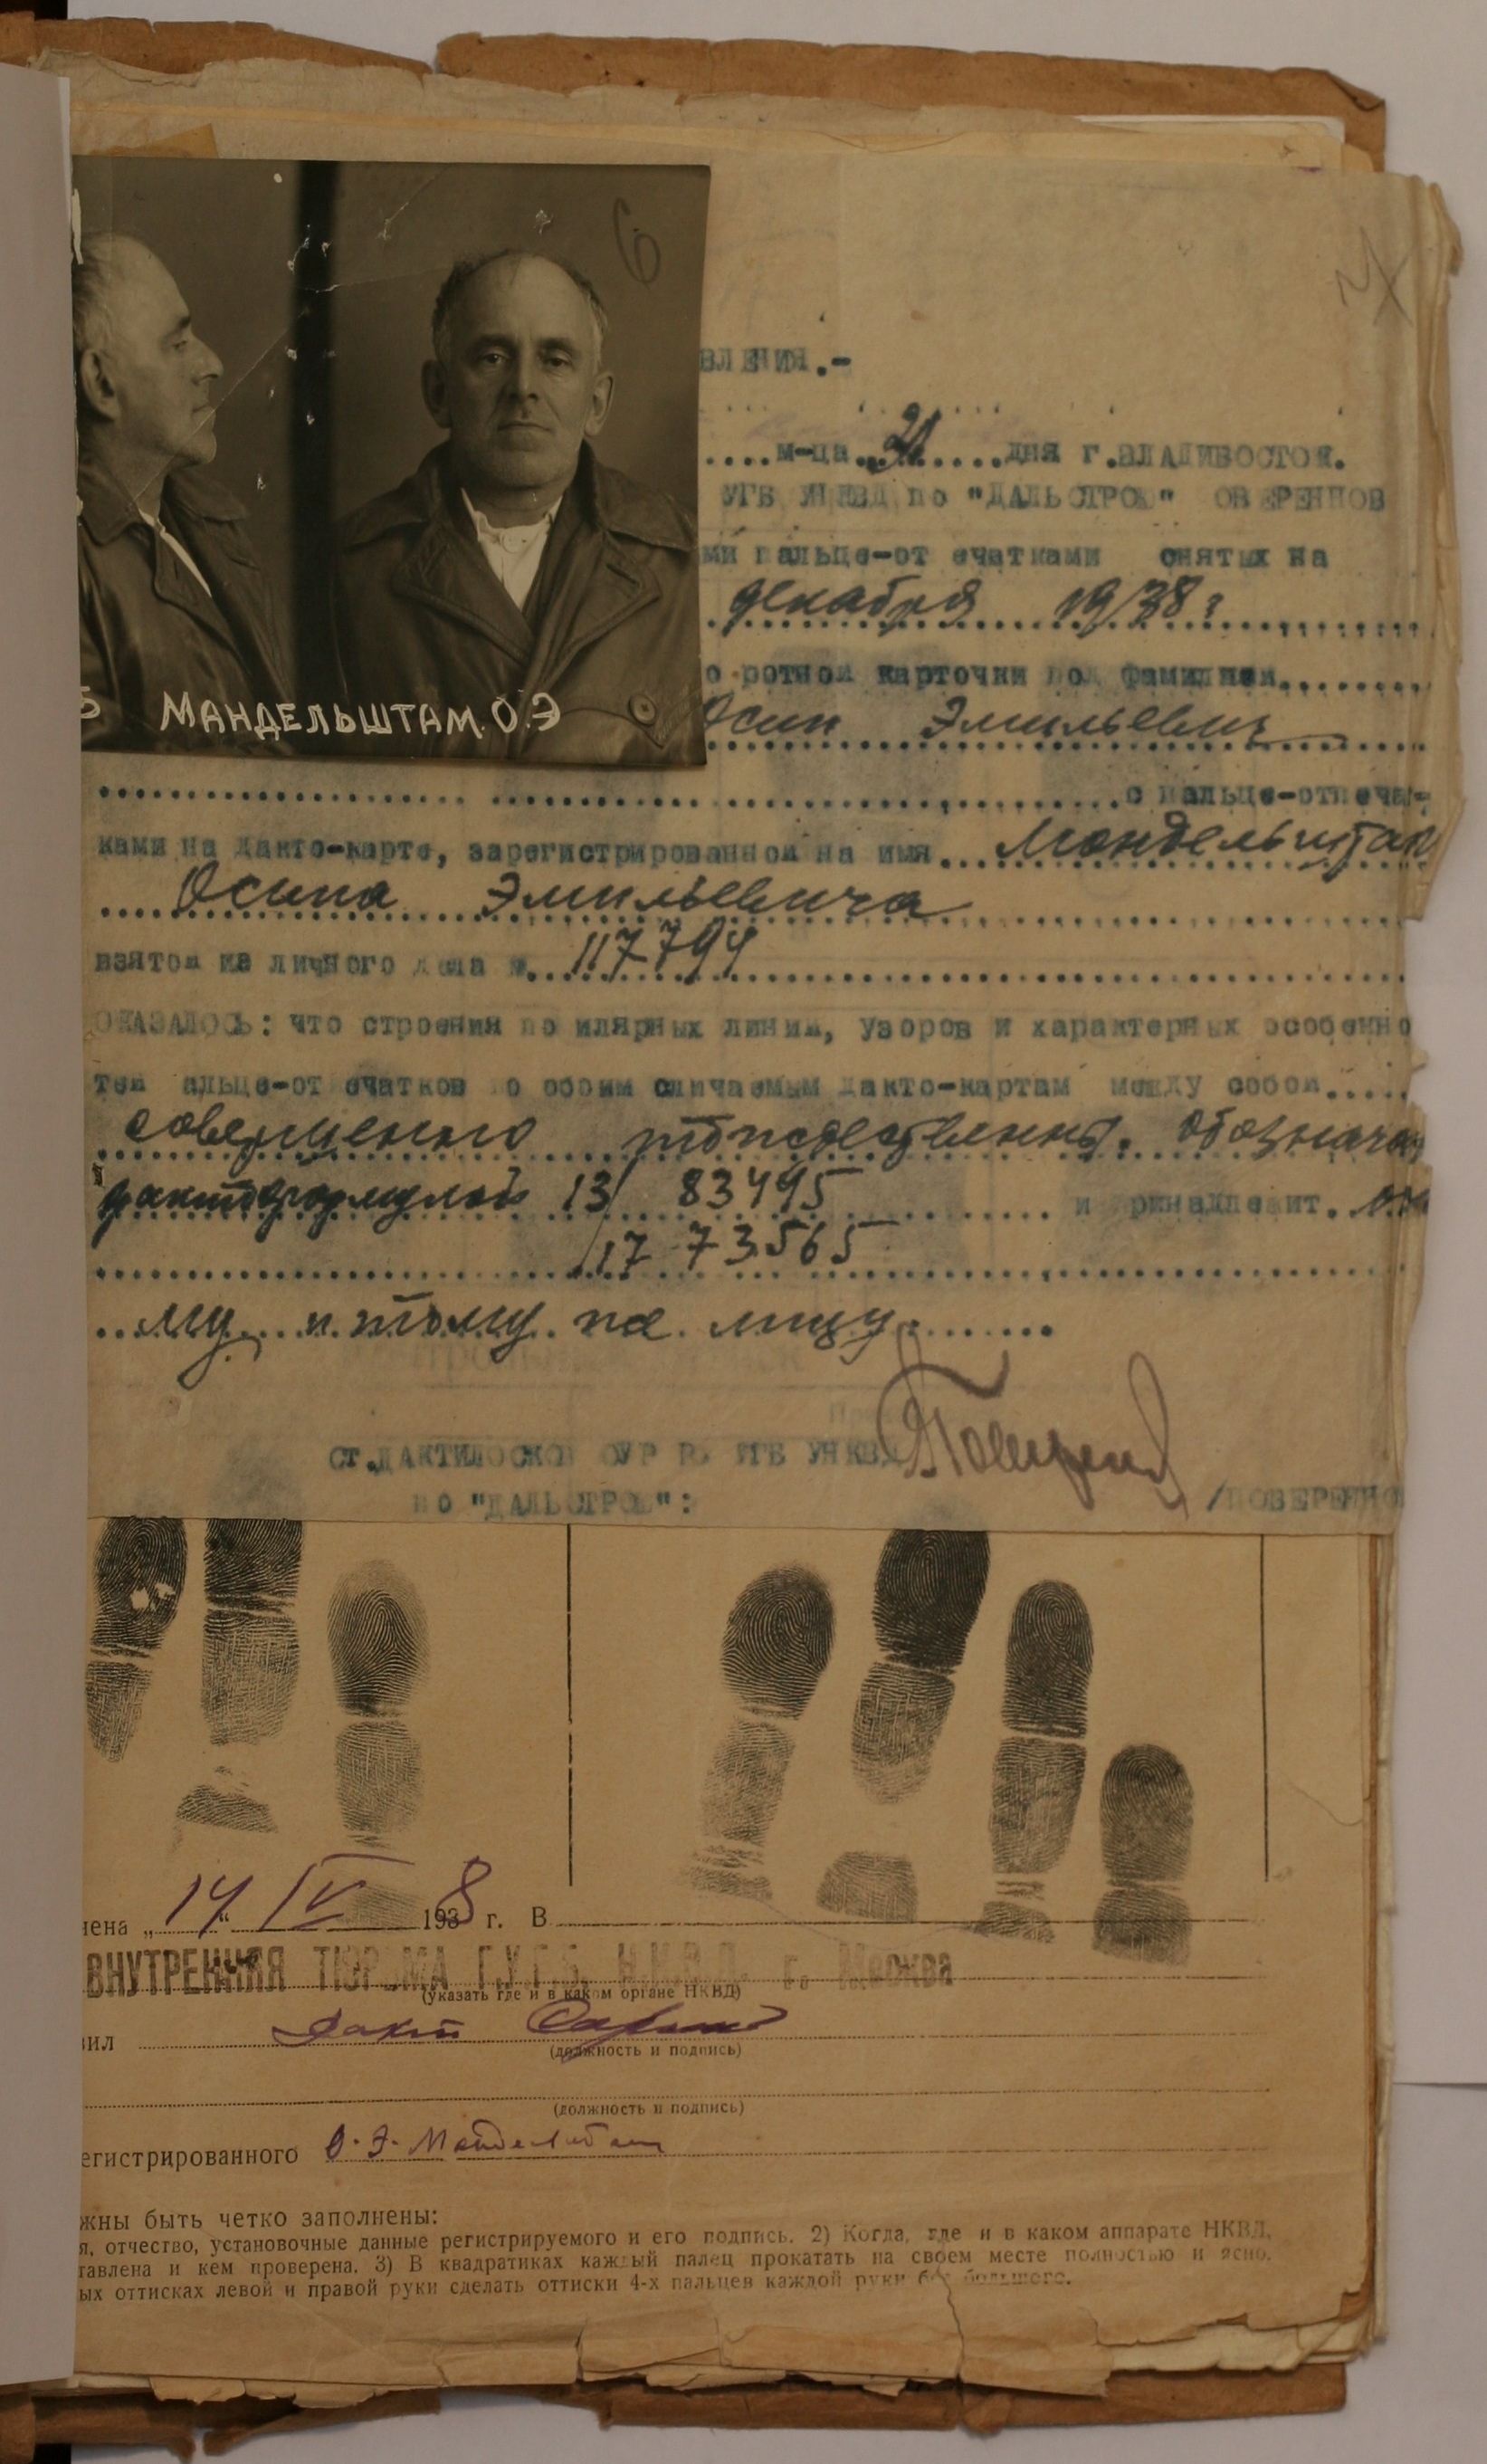 6
вления.-
....м-ца..31.....дня г.ВЛАДИВОСТОК.
УГБ УНКВД по "ДАЛЬСТРОЮ" ОВЕРЕННОВ
ми пальце-от ечатками снятых на
декабря 1938 г
о ротной карточки под фамилией.........
Осип Эмильевич
5 МАНДЕЛЬШТАМ. О. Э
с пальце-отпеча-
ками на дакто-карте, зарегистрированной на имя... Мандельштам
Осипа Эмильевича
взятой из личного дела №... 117794
ОКАЗАЛОСЬ: что строения по илярных линий, узоров и характерных особенно
тей альце-от ечатков о обоим сличаемым дакто-картам между собой.....
совершенно тождественны. Обознача
дактоформулой 13/ 83495 и ринадлежит.
/17 73565
му и тому же лицу.
СТ.ДАКТИЛОСКОП ОУР РО УГБ УНКВД
по "ДАЛЬСТРОЮ": /ПОВЕРЕННО
чена „14“ IV 1938 г. В
ВНУТРЕННЯЯ ТЮРЬМА Г.У.Г.Б. Н.К.В.Д. г. Москва
(указать где и в каком органе НКВД)
вил Дакт
(должность и подпись)
(должность и подпись)
егистрированного О. Э. Мандельштам
жны быть четко заполнены:
я, отчество, установочные данные регистрируемого и его подпись. 2) Когда, где и в каком аппарате НКВД,
тавлена и кем проверена. 3) В квадратиках каждый палец прокатать на своем месте полностью и ясно.
ых оттисках левой и правой руки сделать оттиски 4-х пальцев каждой руки без большого.